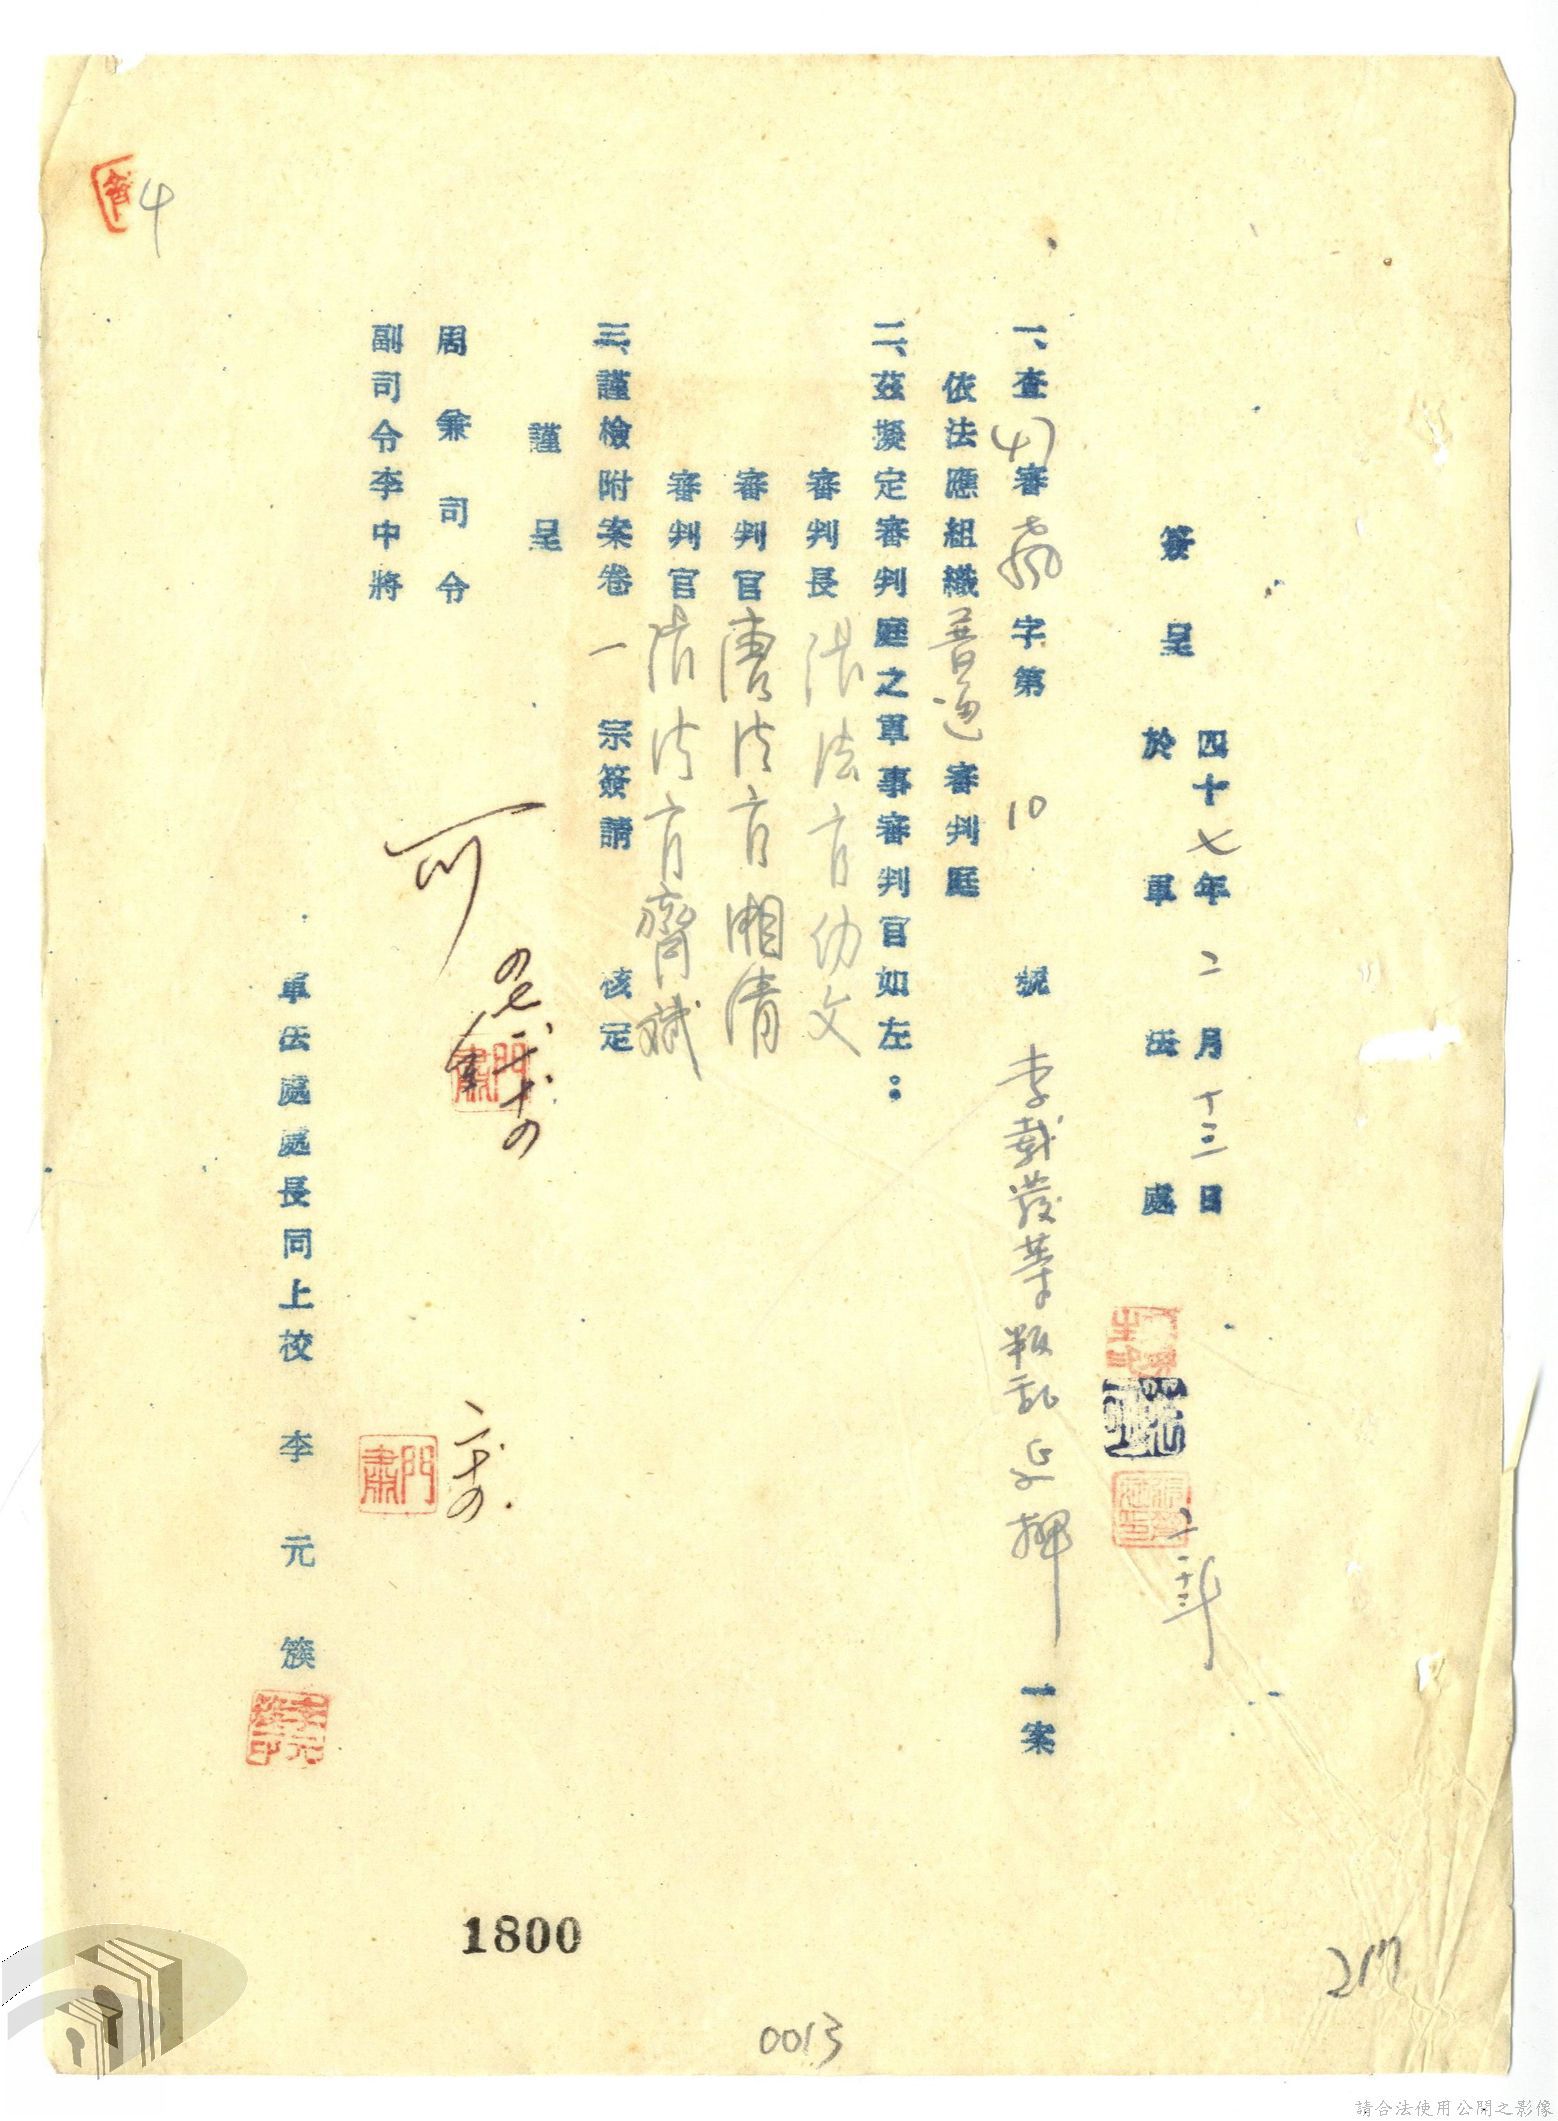 簽呈
四十七年二月十三日
於軍法處
一、查47審字第10號李載發等叛乱一案
依法應組織普通審判庭
二、茲擬定審判庭之軍事審判官如左：
審判長張法官幼文
審判官唐法官湘清
審判官張法官齊斌
三、謹檢附案卷一宗簽請核定
謹呈
周兼司令
副司令李中將
可
軍法處處長同上校李元簇
4
1800
217
0013
請合法使用公開之影像